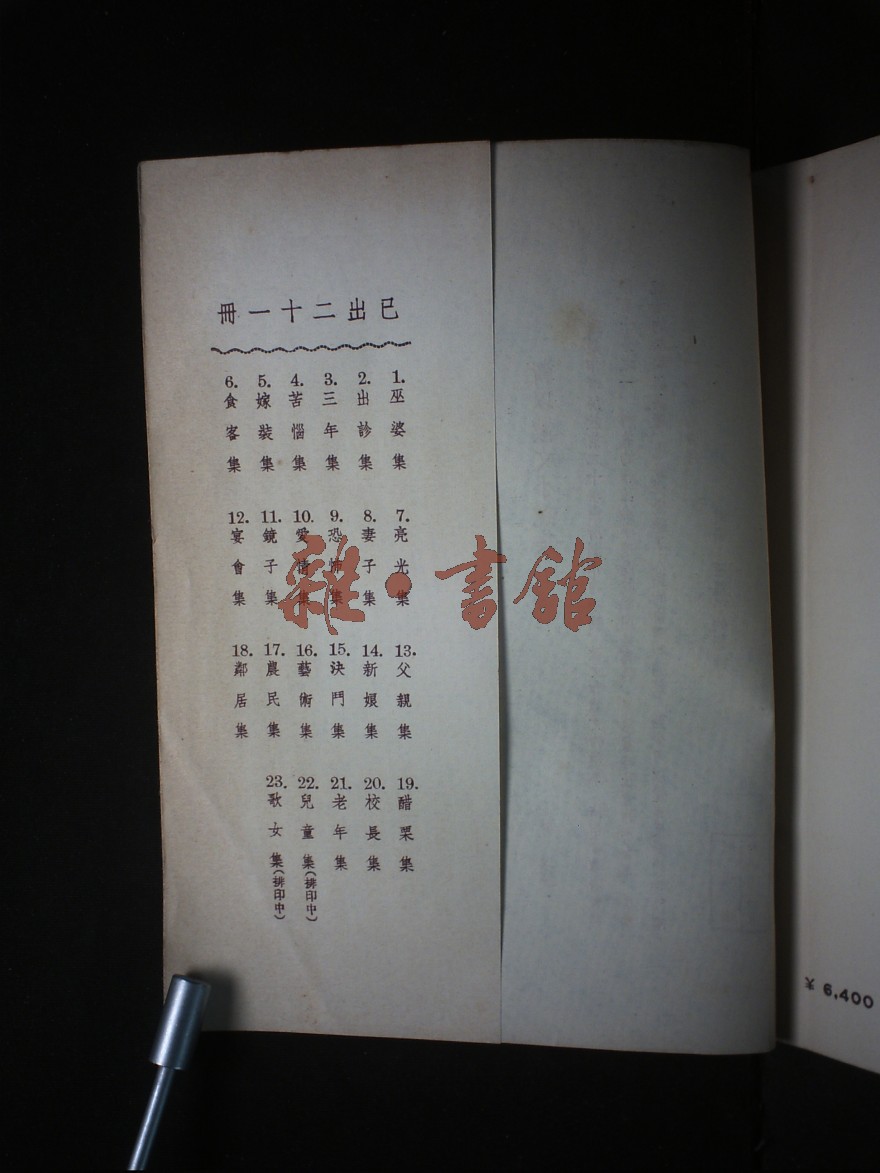 已出二十一冊
1. 巫婆集
2. 出診集
3. 三年集
4. 苦惱集
5. 嫁裝集
6. 食客集
7. 亮光集
8. 妻子集
9. 恐怖集
10. 愛情集
11. 鏡子集
12. 宴會集
13. 父親集
14. 新娘集
15. 決鬥集
16. 藝術集
17. 農民集
18. 鄰居集
19. 醋栗集
20. 校長集
21. 老年集
22. 兒童集(排印中)
23. 歌女集(排印中)
雜·書館
¥ 6,400